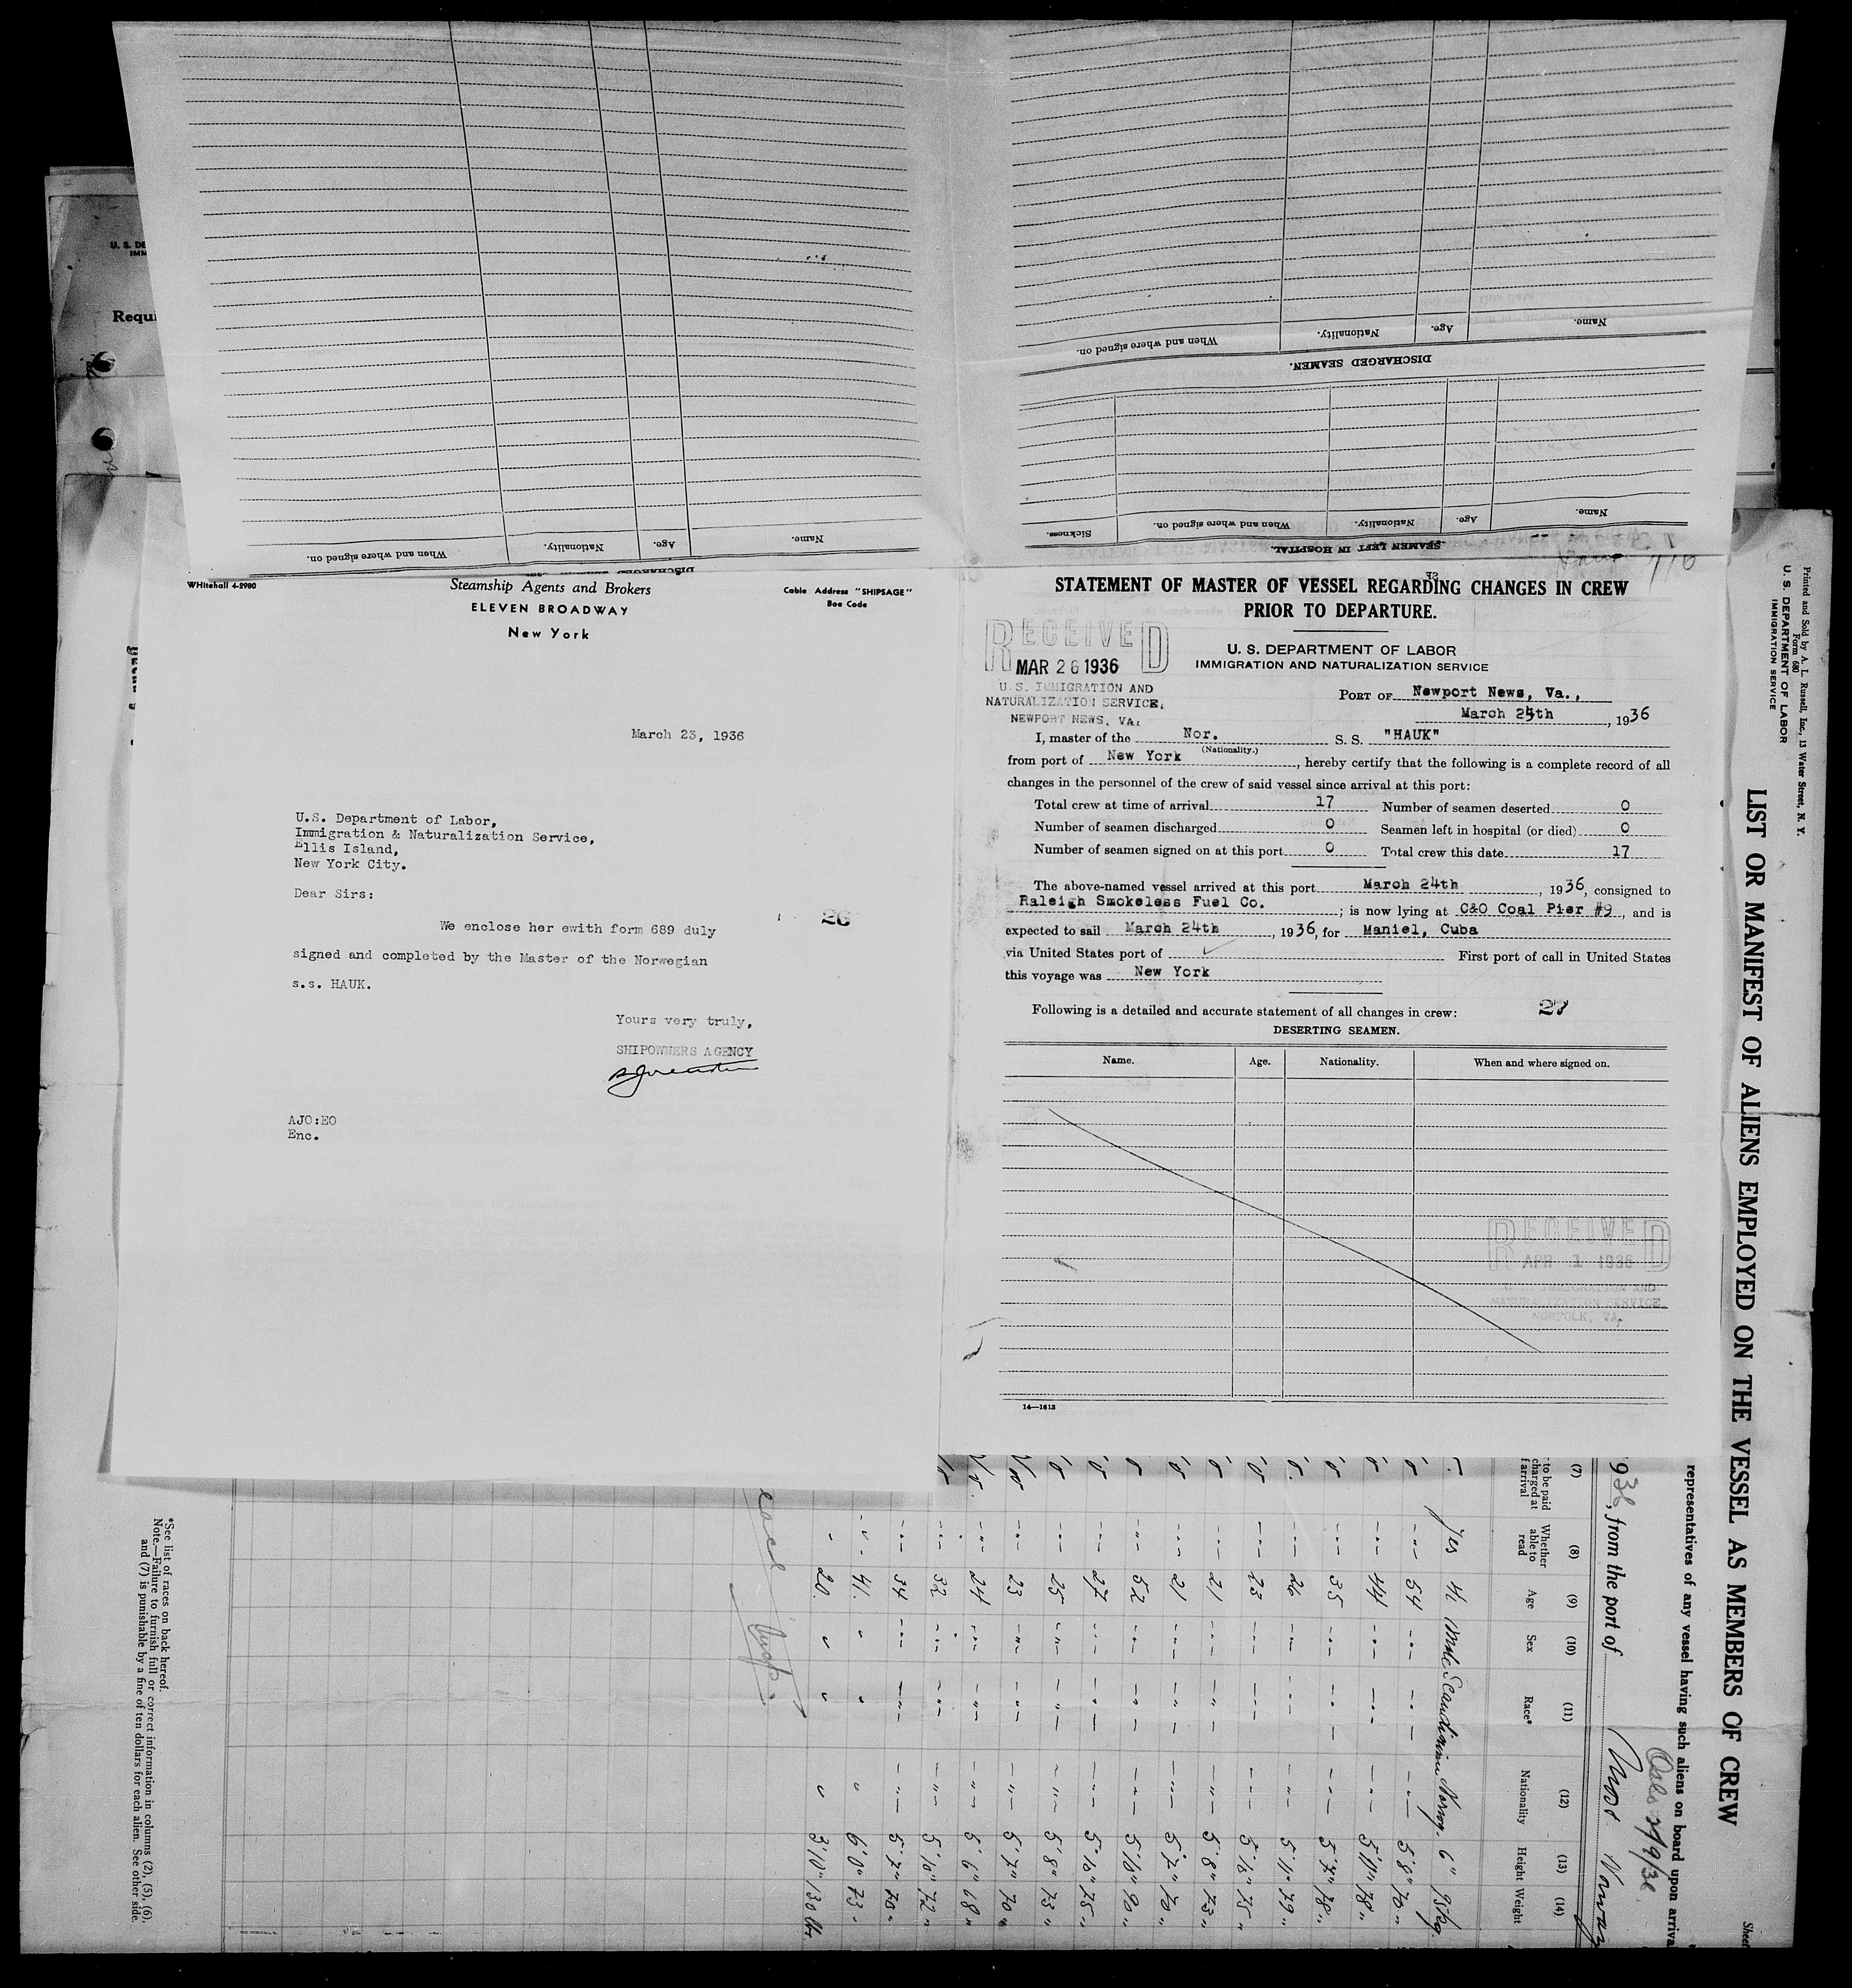 U. S. DE
IMM
Requi
Name.
Age.
Nationality.
When and where signed on.
DISCHARGED SEAMEN.
Sickness.
When and where signed on.
Nationality.
Age.
Name.
SEAMEN LEFT IN HOSPITAL
Name.
Age.
Nationality.
When and where signed on.
WHitehall 4-2980
Steamship Agents and Brokers
ELEVEN BROADWAY
New York
Cable Address "SHIPSAGE"
Boe Code
March 23, 1936
U.S. Department of Labor,
Immigration & Naturalization Service,
Ellis Island,
New York City.
Dear Sirs:
26
We enclose her ewith form 689 duly
signed and completed by the Master of the Norwegian
s.s. HAUK.
Yours very truly,
SHIPOWNERS AGENCY
AJO:EO
Enc.
STATEMENT OF MASTER OF VESSEL REGARDING CHANGES IN CREW
PRIOR TO DEPARTURE.
RECEIVED
MAR 26 1936
U.S. IMMIGRATION AND
NATURALIZATION SERVICE,
NEWPORT NEWS, VA.
U. S. DEPARTMENT OF LABOR
IMMIGRATION AND NATURALIZATION SERVICE
PORT OF Newport News, Va.,
March 25th, 1936
I, master of the Nor. S. S. "HAUK"
(Nationality.)
from port of New York, hereby certify that the following is a complete record of all
changes in the personnel of the crew of said vessel since arrival at this port:
Total crew at time of arrival 17 Number of seamen deserted 0
Number of seamen discharged 0 Seamen left in hospital (or died) 0
Number of seamen signed on at this port 0 Total crew this date 17
The above-named vessel arrived at this port March 24th, 1936, consigned to
Raleigh Smokeless Fuel Co.; is now lying at C&O Coal Pier #9, and is
expected to sail March 24th, 1936, for Maniel, Cuba
via United States port of First port of call in United States
this voyage was New York
Following is a detailed and accurate statement of all changes in crew: 27
DESERTING SEAMEN.
Name. Age. Nationality. When and where signed on.
RECEIVED
APR 1 1936
U.S. IMMIGRATION AND
NATURALIZATION SERVICE,
NORFOLK, VA.
14—1613
Printed and Sold by A. L. Russell, Inc., 13 Water Street, N. Y.
Form 680
U. S. DEPARTMENT OF LABOR
IMMIGRATION SERVICE
LIST OR MANIFEST OF ALIENS EMPLOYED ON THE VESSEL AS MEMBERS OF CREW
Sheet
representatives of any vessel having such aliens on board upon arriva
936, from the port of Moss. Norway
Oslo 29/9/36
(7) (8) (9) (10) (11) (12) (13) (14)
to be paid
charged at
f arrival
Whether
able to
read
Age
Sex
Race*
Nationality
Height
Weight
Yes 41 Male Scandinavian Norwg. 6" 95kg.
54 5'8" 70 "
44 5'10" 78 "
35 5'7" 78 "
26 5'11" 79 "
23 5'6" 75 "
21 5'8" 73 "
21 5'7" 70 "
52 5'6" 90 "
27 5'10" 75 "
25 5'8" 73 "
23 5'7" 70 "
24 5'6" 68 "
32 5'10" 72 "
34 5'7" 70 "
41. 6'0" 73 "
20. 5'10" 130 lbs
*See list of races on back hereof.
Note.—Failure to furnish full or correct information in columns (2), (5), (6),
and (7) is punishable by a fine of ten dollars for each alien. See other side.